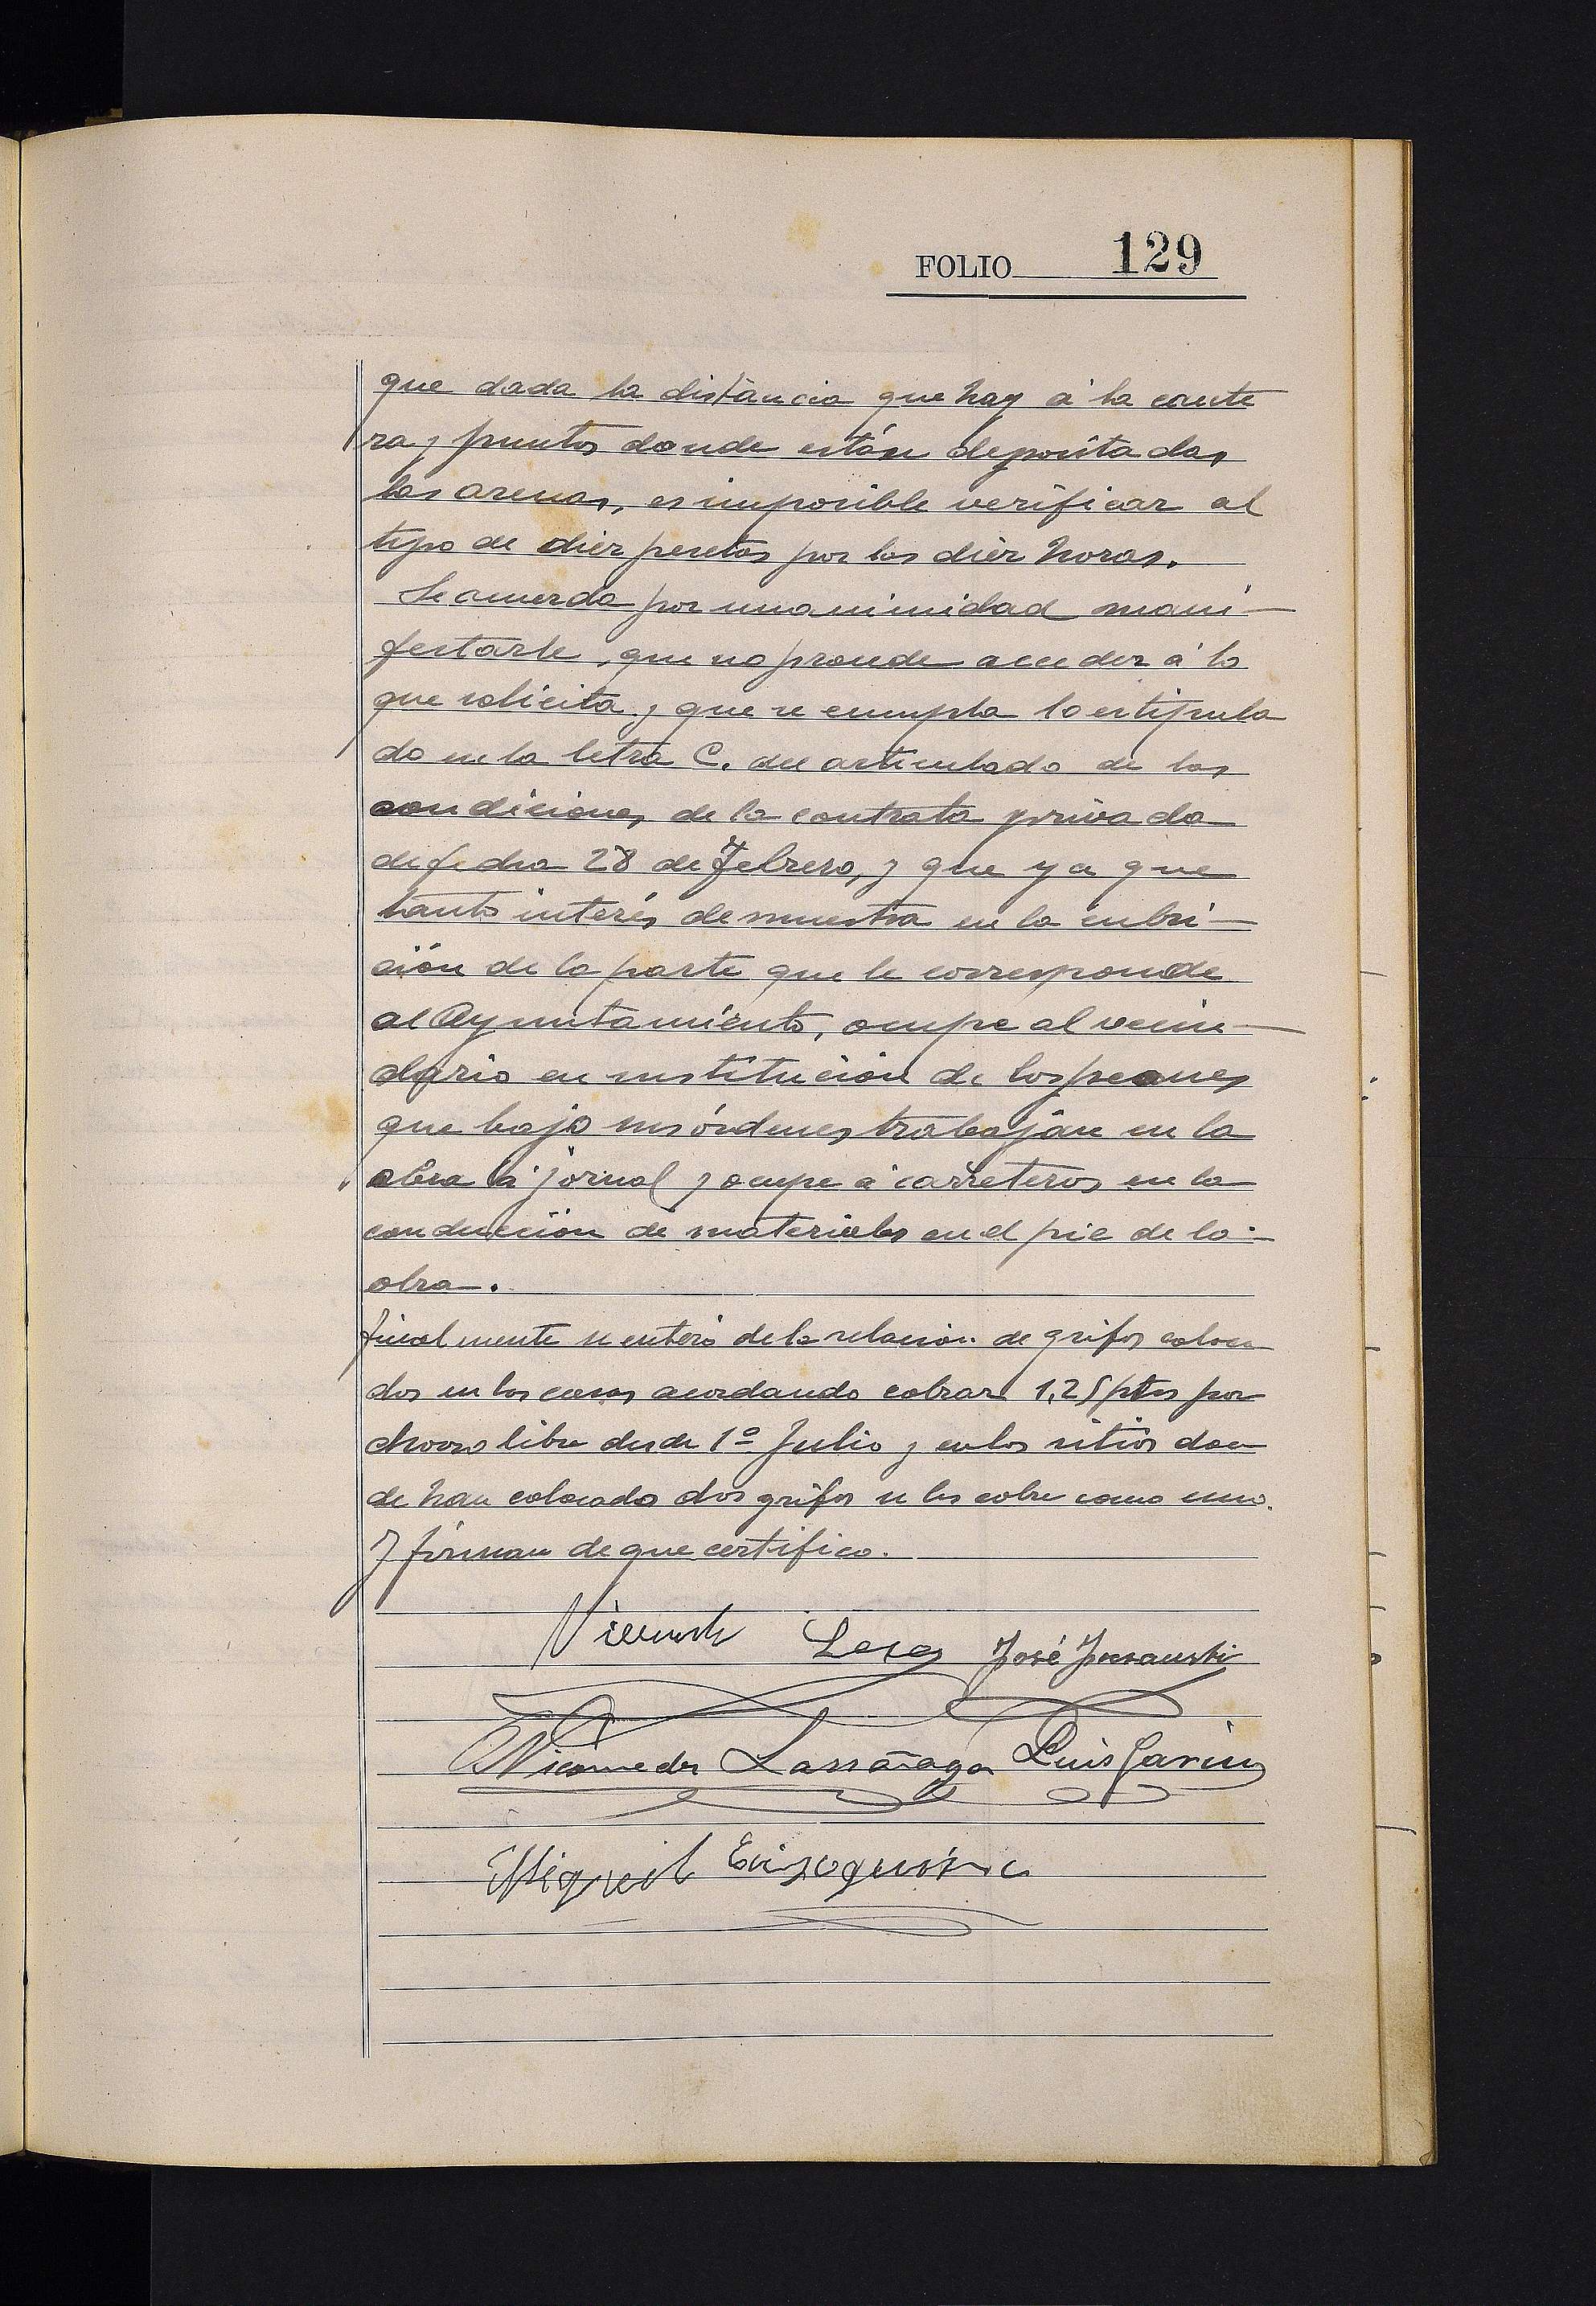 FOLIO 129
que dada la distáncia que hay á la cante
ra y puntos donde están deposita das
las arenas, es imposible verificar al
tipo de diez pesetas por las diez horas.
Se acuerda por unanimidad mani-
festarle, que no procede acceder á lo
que solicita y que se cumpla lo estipula
do en la letra C. del articulado de las
condiciones de la contrata privada
de fecha 28 de Febrero, y que ya que
tanto interés demuestra en la cubri-
ción de la parte que le corresponde
al Ayuntamiento, ocupe al vecin-
dario en sustitución de los peones
que bajo sus órdenes trabaján en la
obra á jornal y ocupe á carreteros en la
conducción de materiales en el pie de la
obra.
finalmente se enteró de la relación de grifos coloca
dos en las casas acordando cobrar 1,25 ptas por
chorro libre desde 1º Julio y en los sitios don
de han colocado dos grifos se les cobre como uno.
Y firman de que certifico.
Vicente José
Nicomedes Larrañaga Luis Garin
Miguel